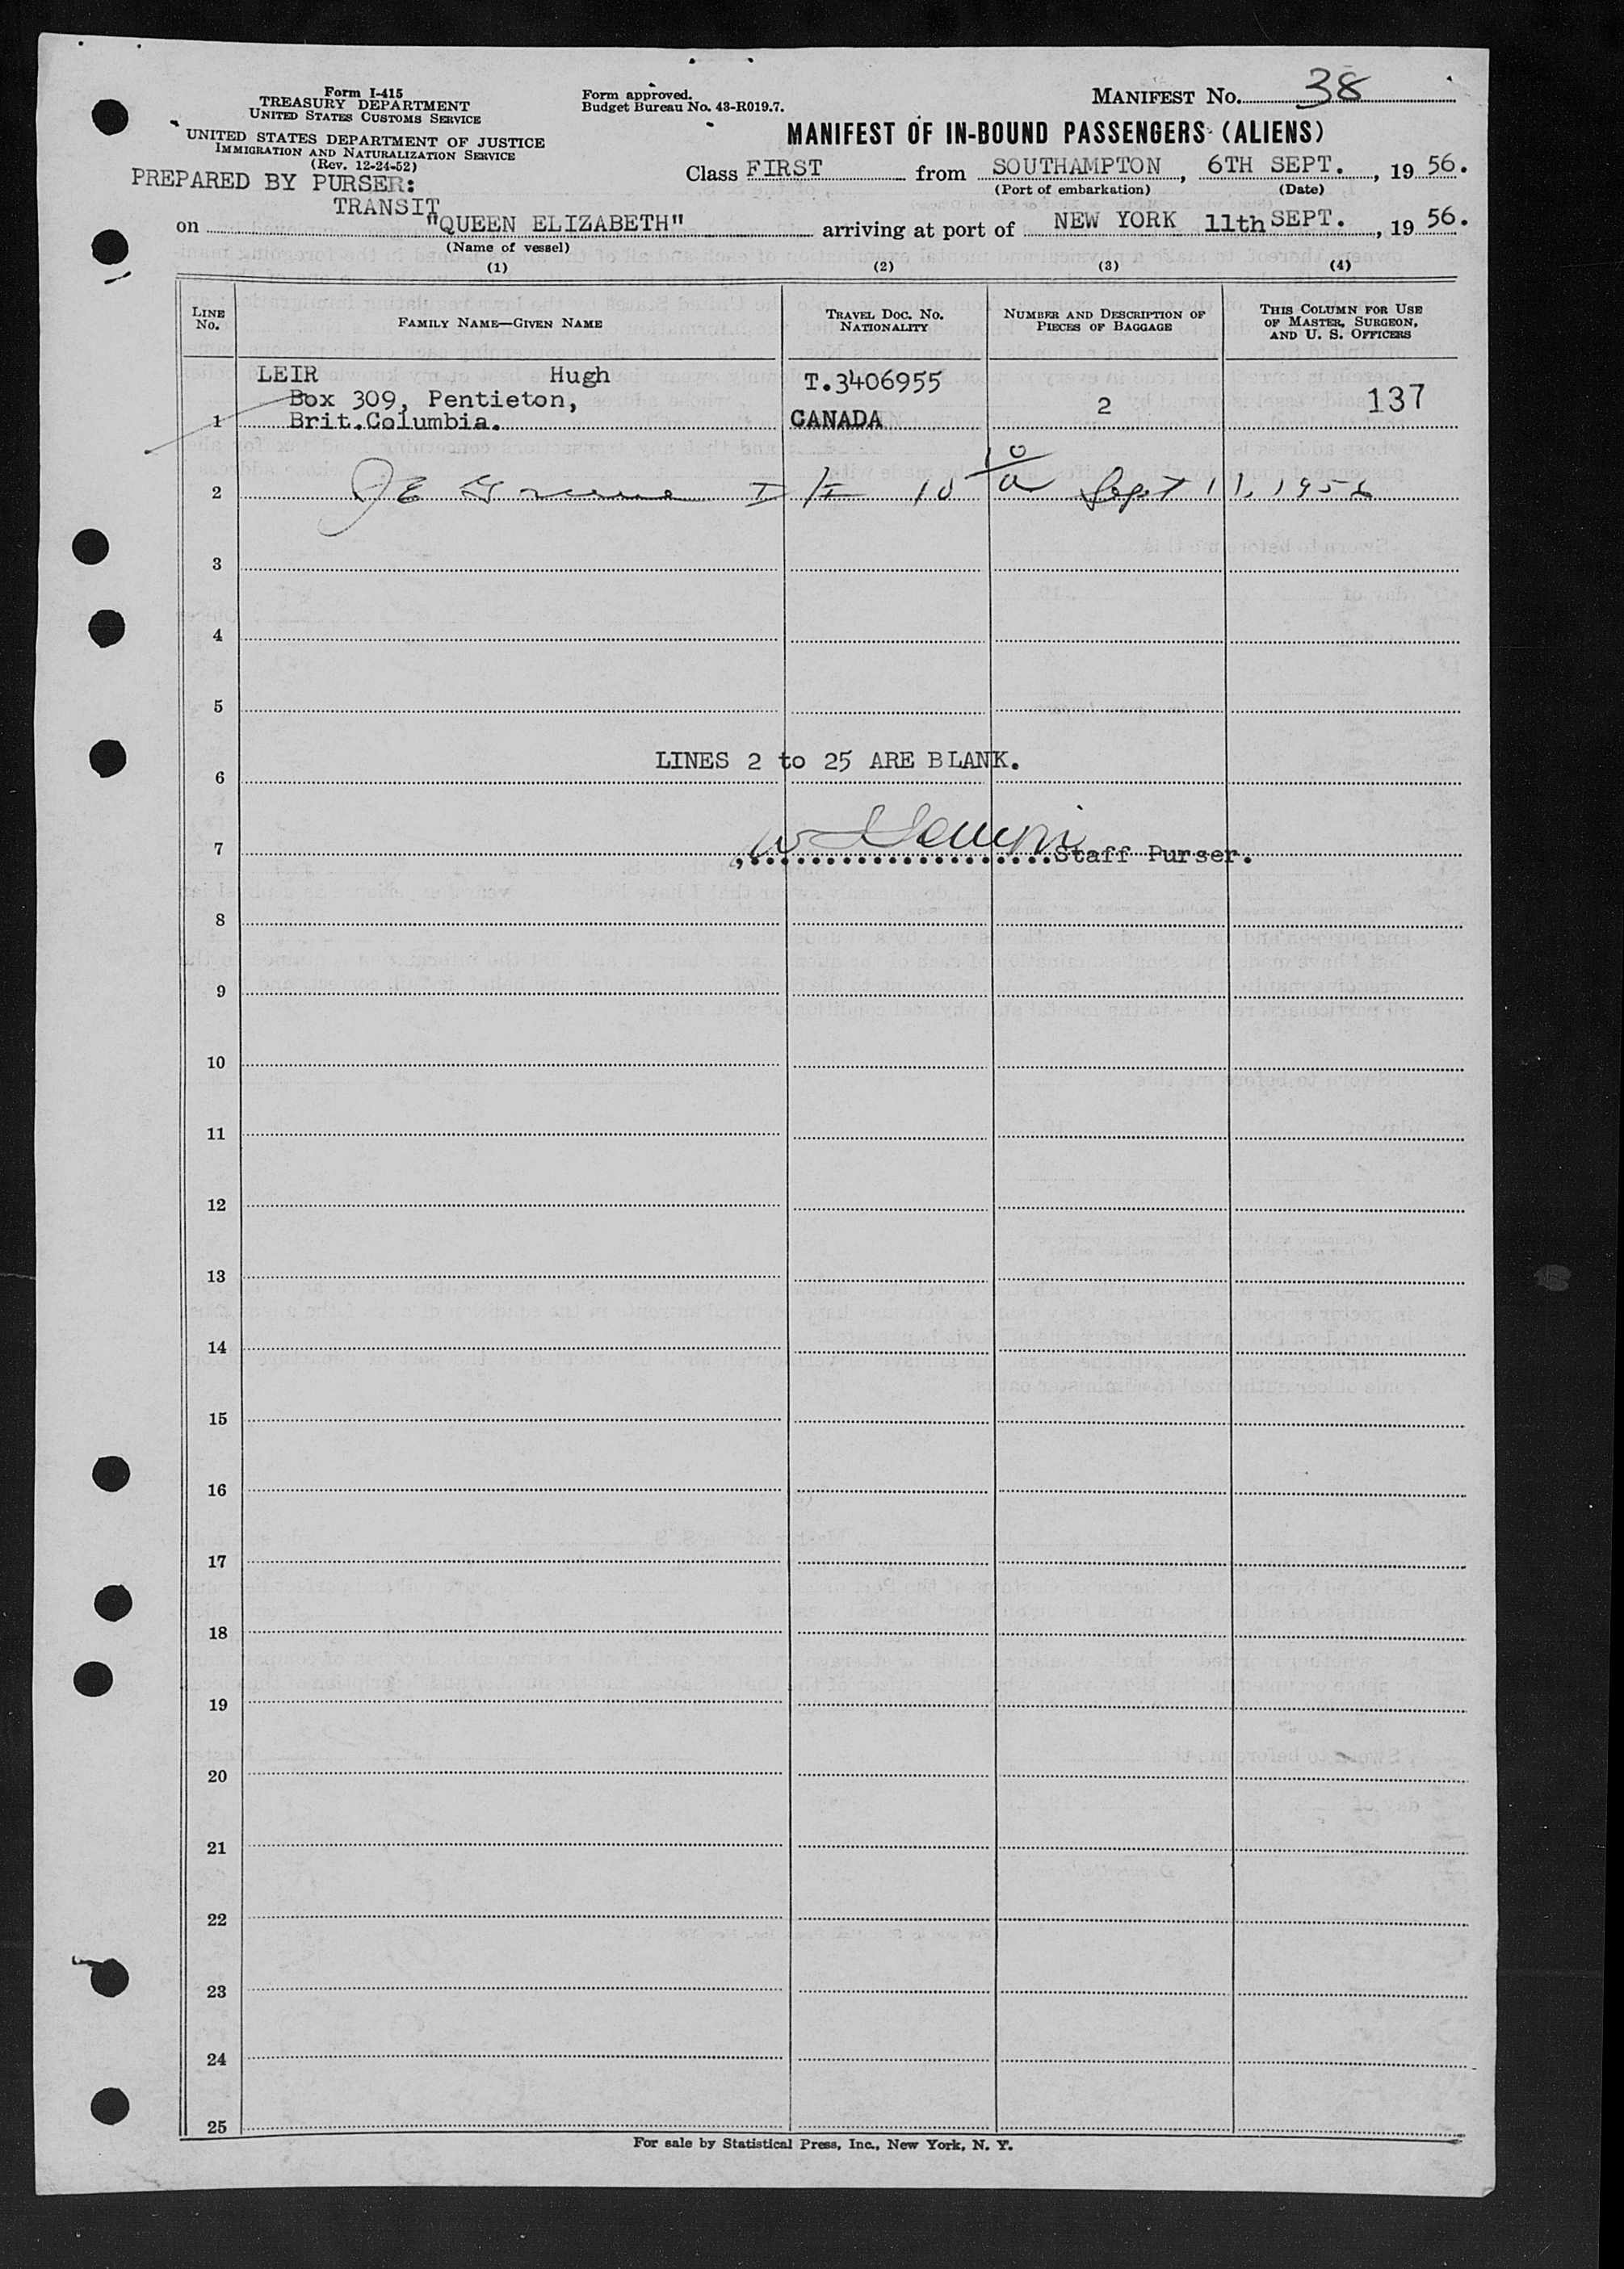 Form I-415
TREASURY DEPARTMENT
UNITED STATES CUSTOMS SERVICE
UNITED STATES DEPARTMENT OF JUSTICE
IMMIGRATION AND NATURALIZATION SERVICE
(Rev. 12-24-52)
PREPARED BY PURSER:
Form approved.
Budget Bureau No. 43-R019.7.
MANIFEST No. 38
MANIFEST OF IN-BOUND PASSENGERS (ALIENS)
Class FIRST from SOUTHAMPTON, 6TH SEPT., 19 56.
(Port of embarkation) (Date)
TRANSIT
on "QUEEN ELIZABETH" arriving at port of NEW YORK 11th SEPT., 19 56.
(Name of vessel)
(1) (2) (3) (4)
LINE No. FAMILY NAME—GIVEN NAME TRAVEL DOC. NO. NATIONALITY NUMBER AND DESCRIPTION OF PIECES OF BAGGAGE THIS COLUMN FOR USE OF MASTER, SURGEON, AND U. S. OFFICERS
LEIR Hugh T.3406955
Box 309, Pentieton, 2 137
1 Brit.Columbia. CANADA
2 J E Greene I/I 10 Sept 11, 1956
3
4
5
LINES 2 to 25 ARE BLANK.
6
7 Staff Purser.
8
9
10
11
12
13
14
15
16
17
18
19
20
21
22
23
24
25
For sale by Statistical Press, Inc., New York, N. Y.